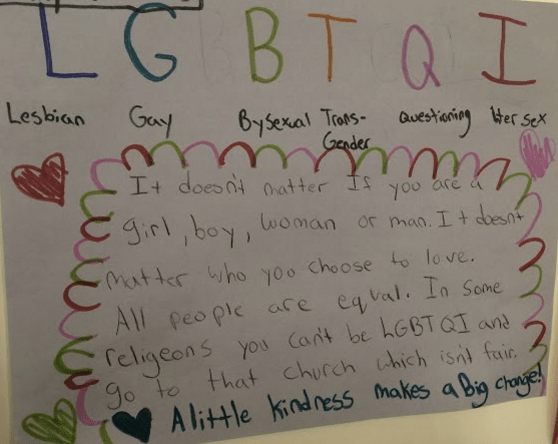 L G B T Q I
Lesbian Gay Bysexual Trans- Gender Questioning Inter sex
It doesn't matter If you are a
girl, boy, woman or man. It doesn't
matter who you choose to love.
All people are equal. In some
religeons you can't be LGBTQI and
go to that church which isn't fair.
A little kindness makes a Big change!